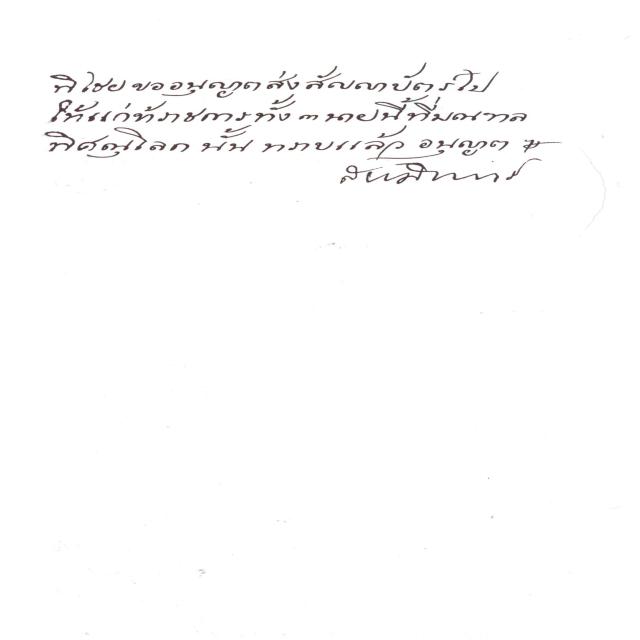 พิไชย ขออนุญาตส่งสัญญาบัตรไป
ให้แก่ข้าราชการทั้ง ๓ นายนี้ที่มณฑล
พิศณุโลก นั้น ทราบแล้ว อนุญาต
สยามินทร์